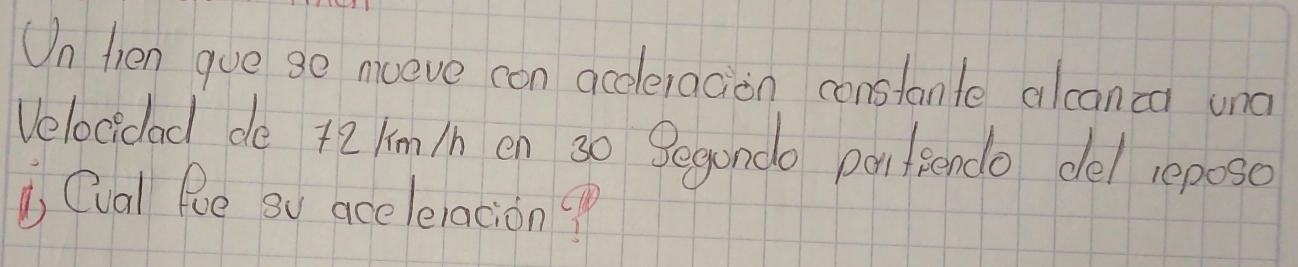 Un tren que se mueve con aceleración constante alcanza una
Velocidad de 72 km/h en 30 Segundo partiendo del reposo
¿Cual fue su aceleración?